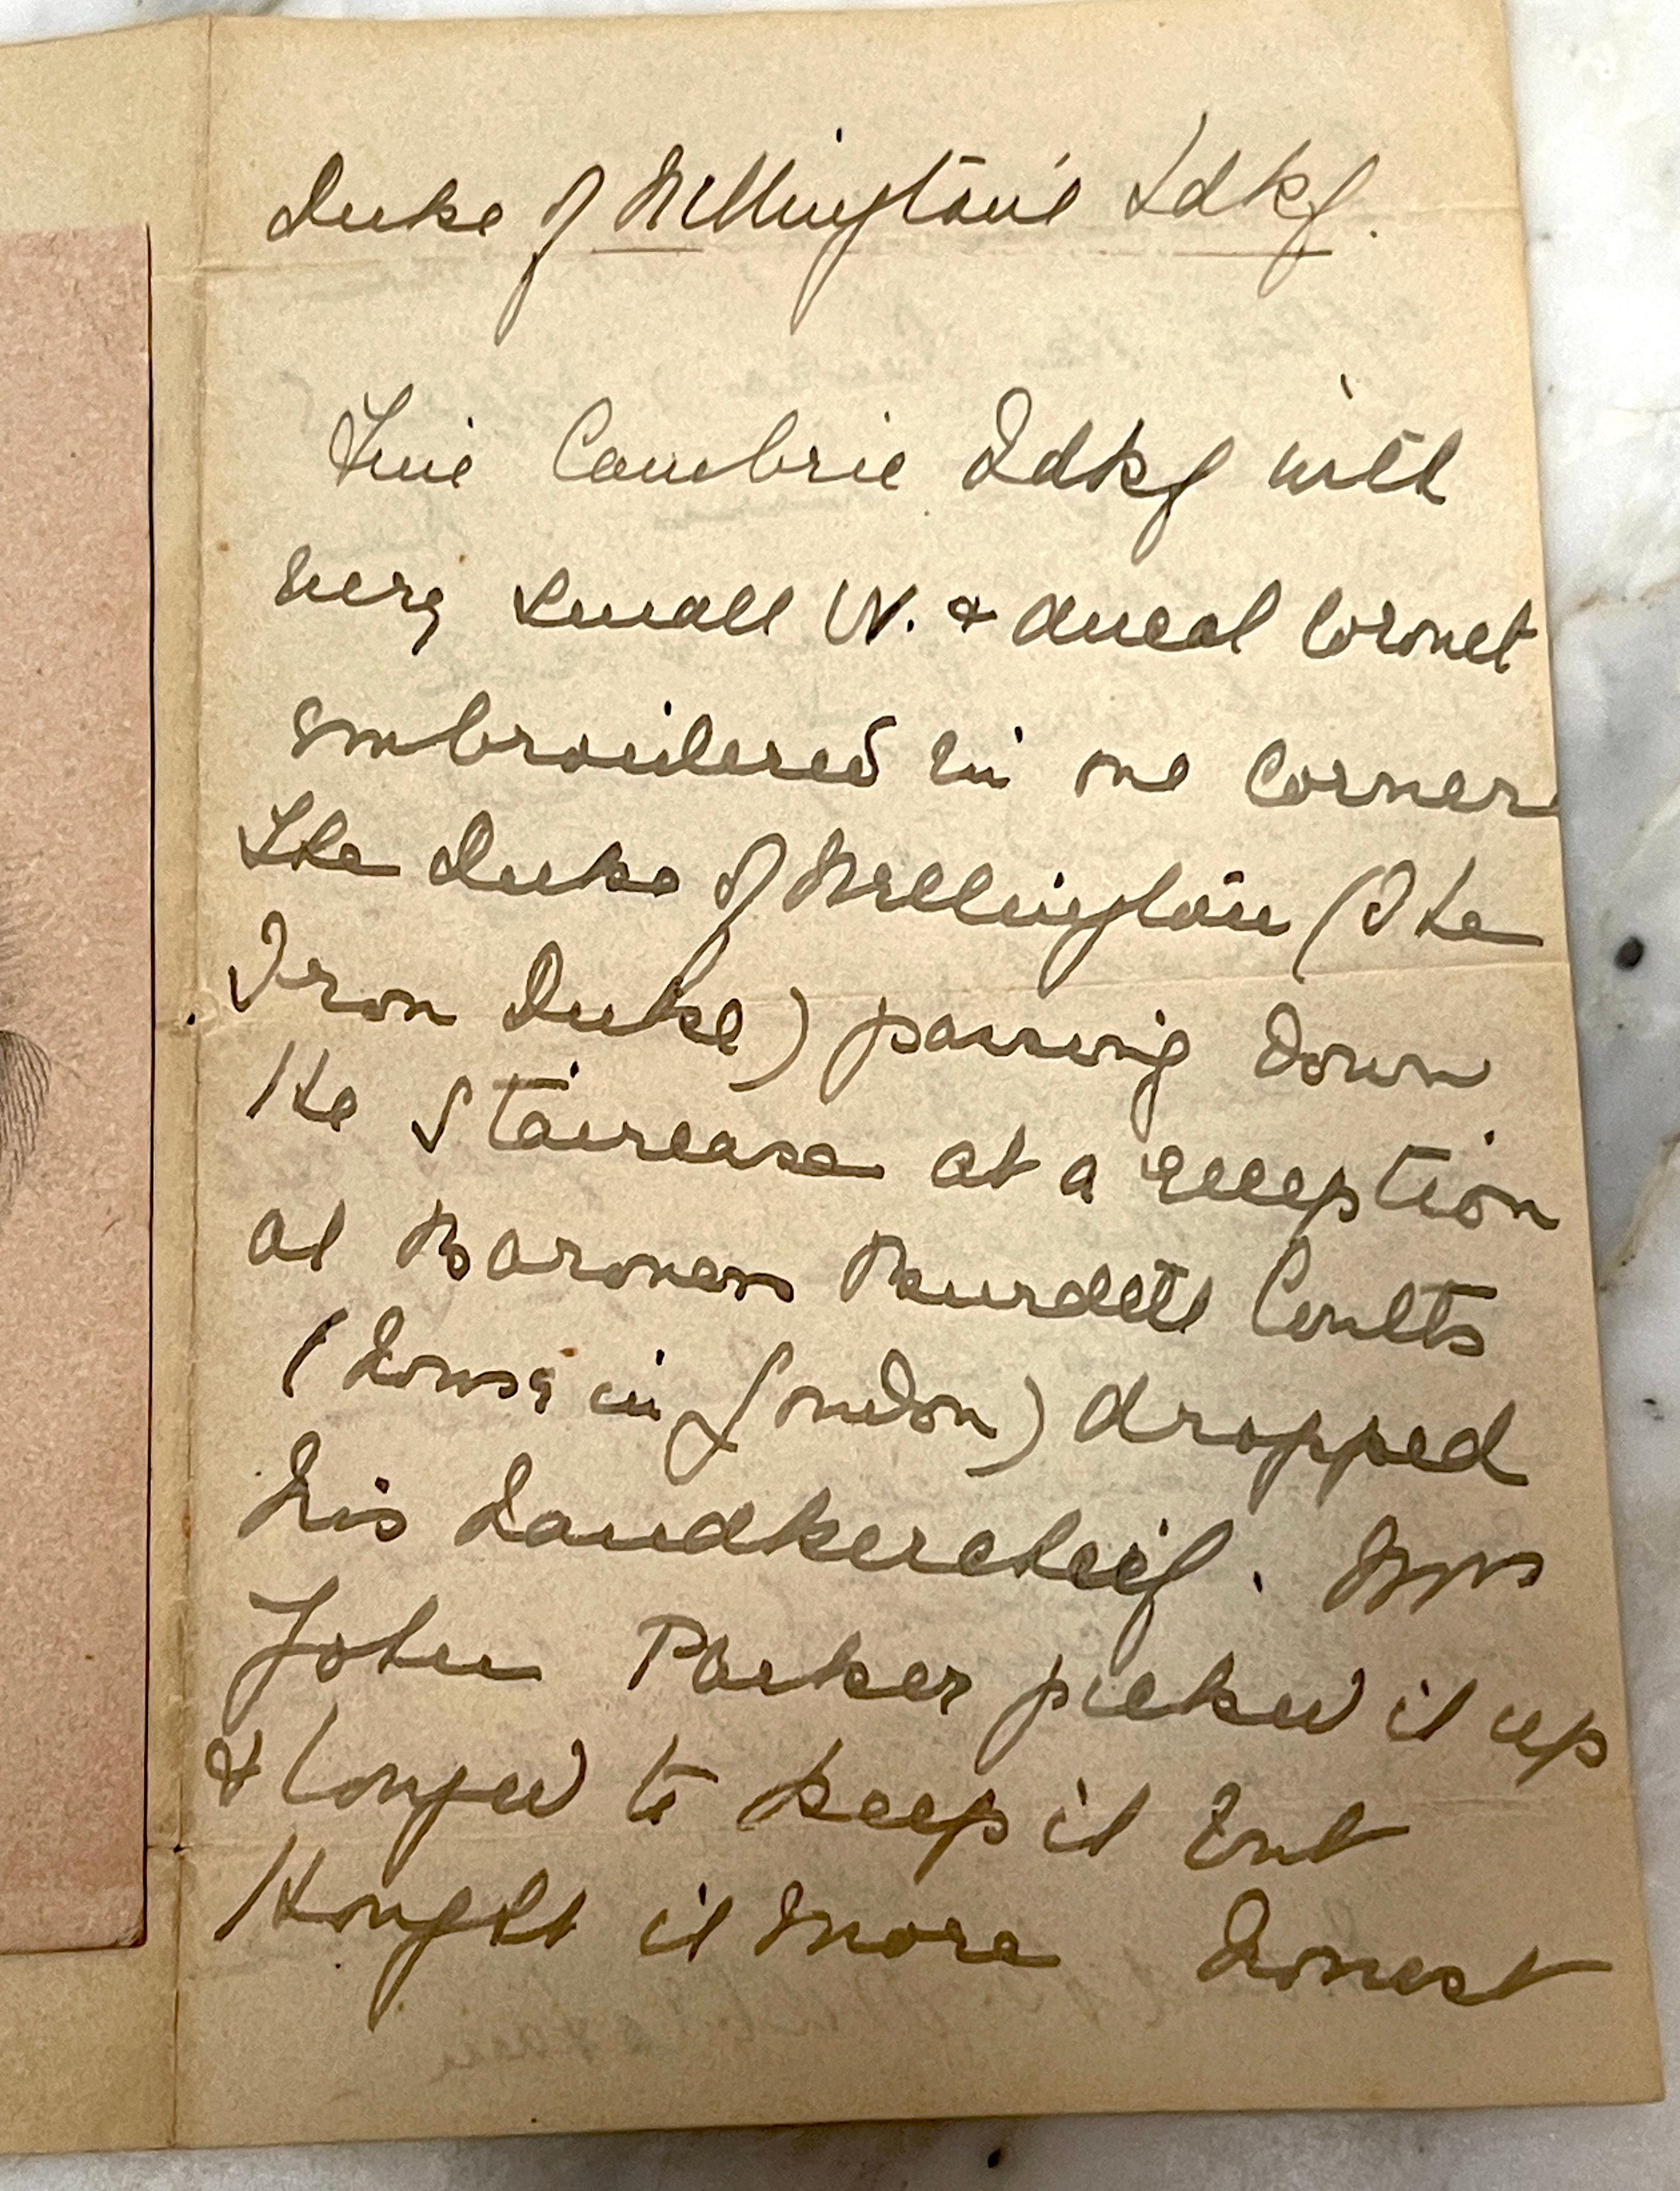 Duke of Wellington's Hdkf.
Fine Cambric Hdkf with
very small W. & ducal Coronet
embroidered in one corner
The Duke of Wellington (The
Iron Duke) passing down
the Staircase at a reception
at Baroness Burdett Coutts
(house in London) dropped
his Handkercheif. Mrs
John Parker picked it up
& longed to keep it but
thought it more honest